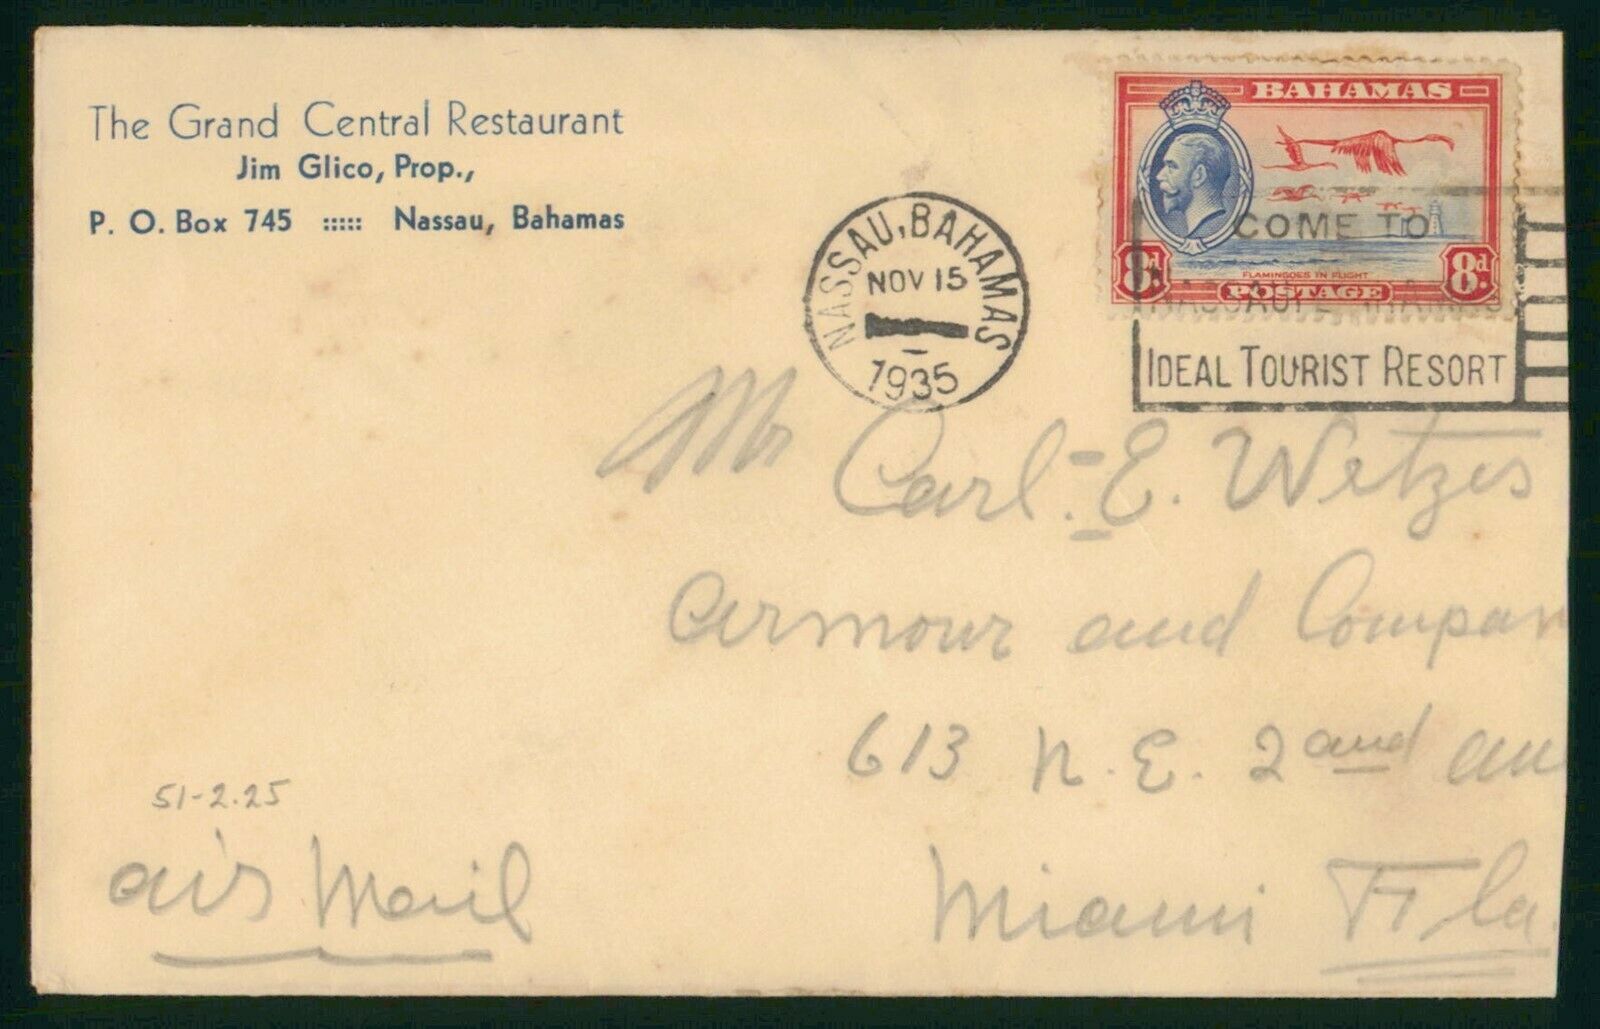 The Grand Central Restaurant
Jim Glico, Prop.,
P. O. Box 745 ::::: Nassau, Bahamas
BAHAMAS
8d. 8d.
FLAMINGOES IN FLIGHT
POSTAGE
NASSAU, BAHAMAS
NOV 15
1935
COME TO
IDEAL TOURIST RESORT
Mr Carl. E. Wetzes
Armour and Compan
613 N. E. 2and au
Miami Fla.
51-2.25
air Mail